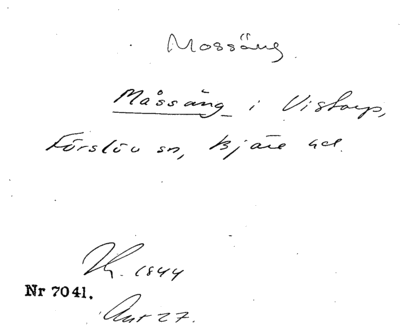 Mossäng
Måssäng i Vistorp,
Förslöv sn, Bjäre hd.
1844
Nr 7041.
27.